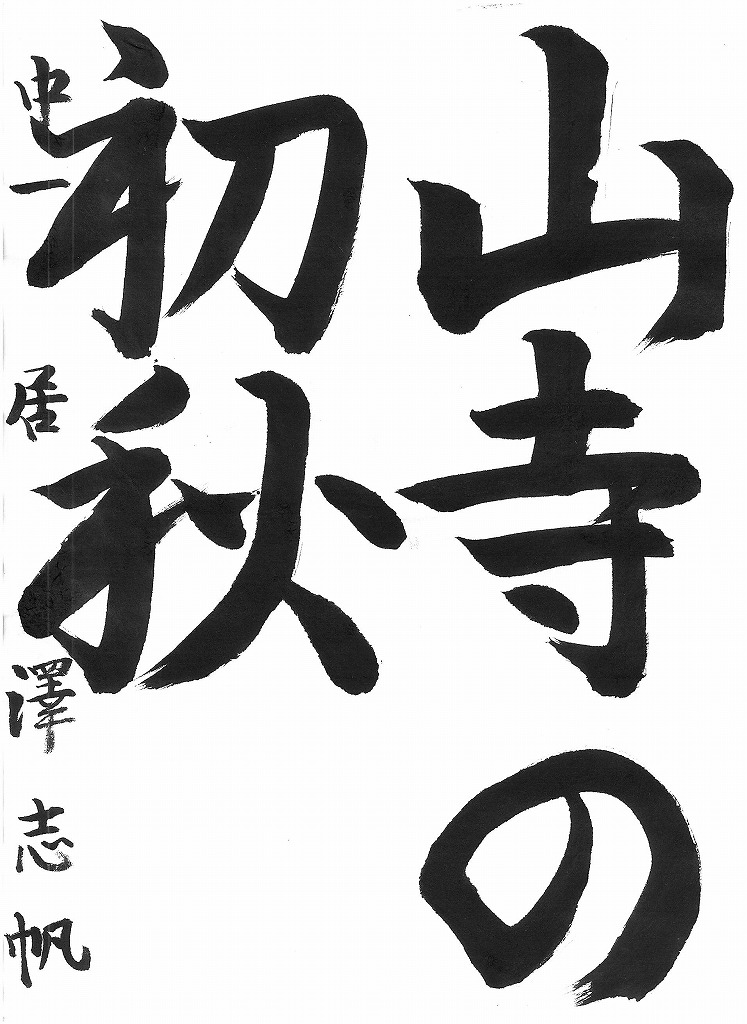 山寺の
初秋
中一 居澤志帆